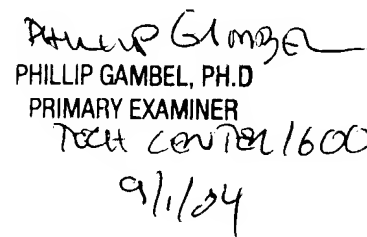 PHILLIP GAMBEL
PHILLIP GAMBEL, PH.D
PRIMARY EXAMINER
TECH CENTER 1600
9/1/04